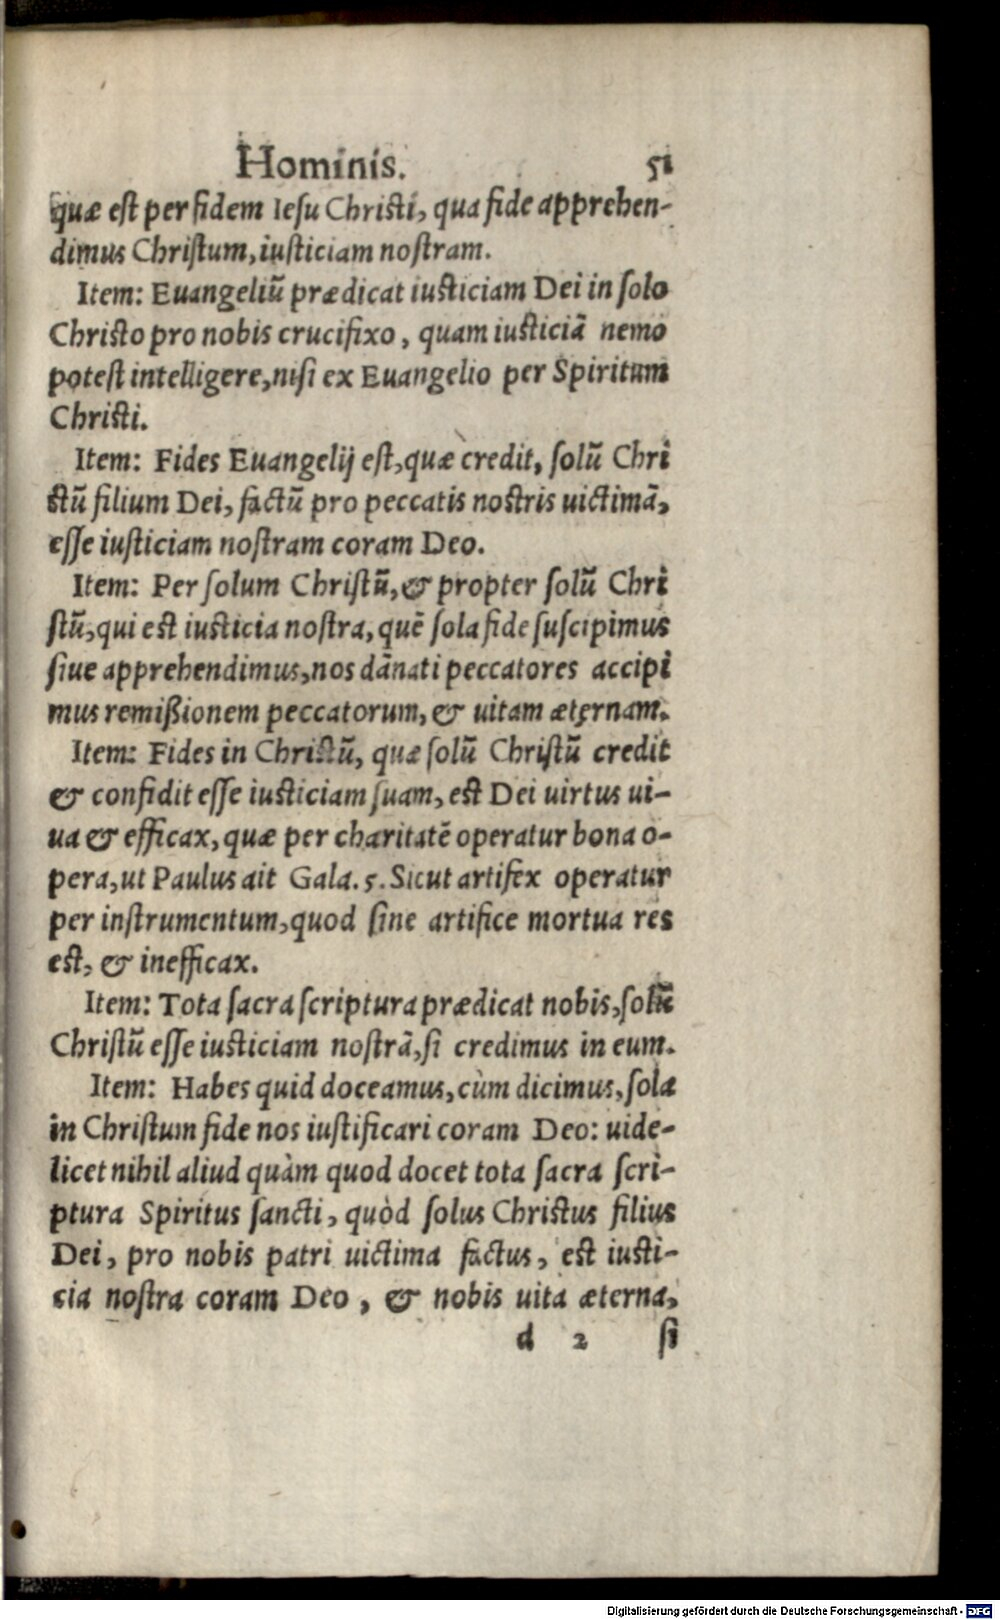 Hominis. 51
quæ est per fidem Iesu Christi, qua fide apprehen-
dimus Christum, iusticiam nostram.
Item: Euangeliũ prædicat iusticiam Dei in solo
Christo pro nobis crucifixo, quam iusticiã nemo
potest intelligere, nisi ex Euangelio per Spiritum
Christi.
Item: Fides Euangelij est, quæ credit, solũ Chri
stũ filium Dei, factũ pro peccatis nostris uictimã,
esse iusticiam nostram coram Deo.
Item: Per solum Christũ, & propter solũ Chri
stũ, qui est iusticia nostra, quẽ sola fide suscipimus
siue apprehendimus, nos dãnati peccatores accipi
mus remißionem peccatorum, & uitam æternam.
Item: Fides in Christũ, quæ solũ Christũ credit
& confidit esse iusticiam suam, est Dei uirtus ui-
ua & efficax, quæ per charitatẽ operatur bona o-
pera, ut Paulus ait Gala. 5. Sicut artifex operatur
per instrumentum, quod sine artifice mortua res
est, & inefficax.
Item: Tota sacra scriptura prædicat nobis, solũ
Christũ esse iusticiam nostrã, si credimus in eum.
Item: Habes quid doceamus, cùm dicimus, sola
in Christum fide nos iustificari coram Deo: uide-
licet nihil aliud quàm quod docet tota sacra scri-
ptura Spiritus sancti, quòd solus Christus filius
Dei, pro nobis patri uictima factus, est iusti-
cia nostra coram Deo, & nobis uita æterna,
d 2 si
Digitalisierung gefördert durch die Deutsche Forschungsgemeinschaft - DFG